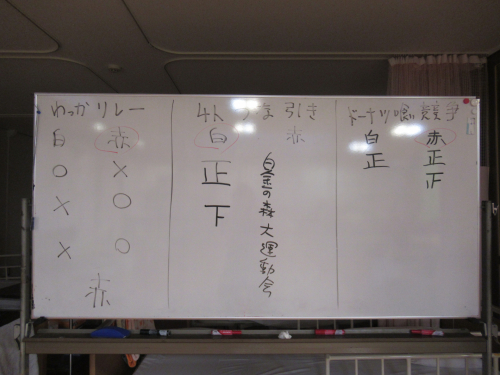 わっかリレー
白 赤
○ ×
× ○
× ○
赤
4人 つな引き
白 赤
正
下
白金の森大運動会
ドーナツ喰い競争
白 赤
正 正
正